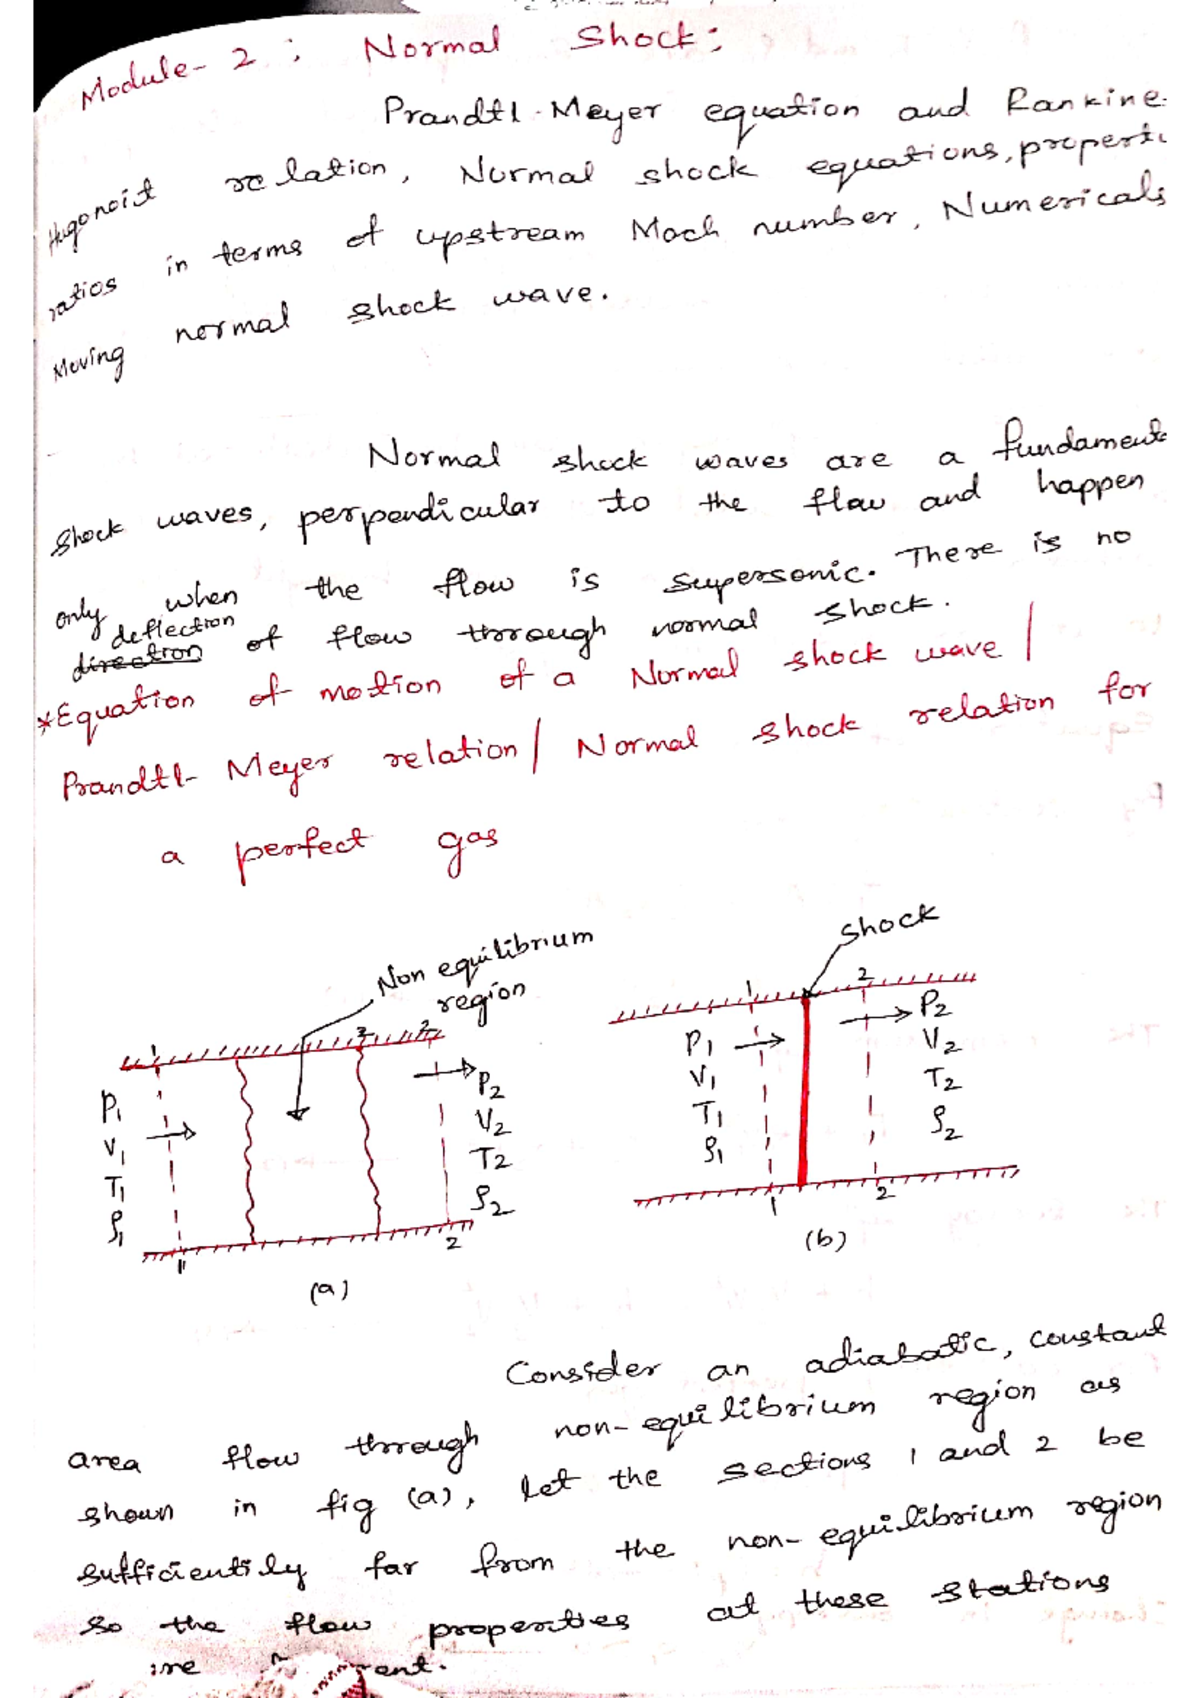 Module-2 : Normal Shock:
Prandtl-Meyer equation and Rankine-
Hugonoid relation, Normal shock equations, properti
ratios in terms of upstream Mach number, Numericals
Moving normal shock wave.
Normal shock waves are a fundament
Shock waves, perpendicular to the flow and happen
only when the flow is supersonic. There is no
deflection
direction of flow through normal shock.
*Equation of motion of a Normal shock wave /
Prandtl-Meyer relation / Normal shock relation for
a perfect gas
Non equilibrium
region
1 2 2
P1 V1 T1 ρ1
P2 V2 T2 ρ2
1 2
(a)
Shock
1 2
P1 V1 T1 ρ1
P2 V2 T2 ρ2
1 2
(b)
Consider an adiabatic, constant
area flow through non-equilibrium region as
shown in fig (a), Let the sections 1 and 2 be
sufficiently far from the non-equilibrium region
So the flow properties at these stations